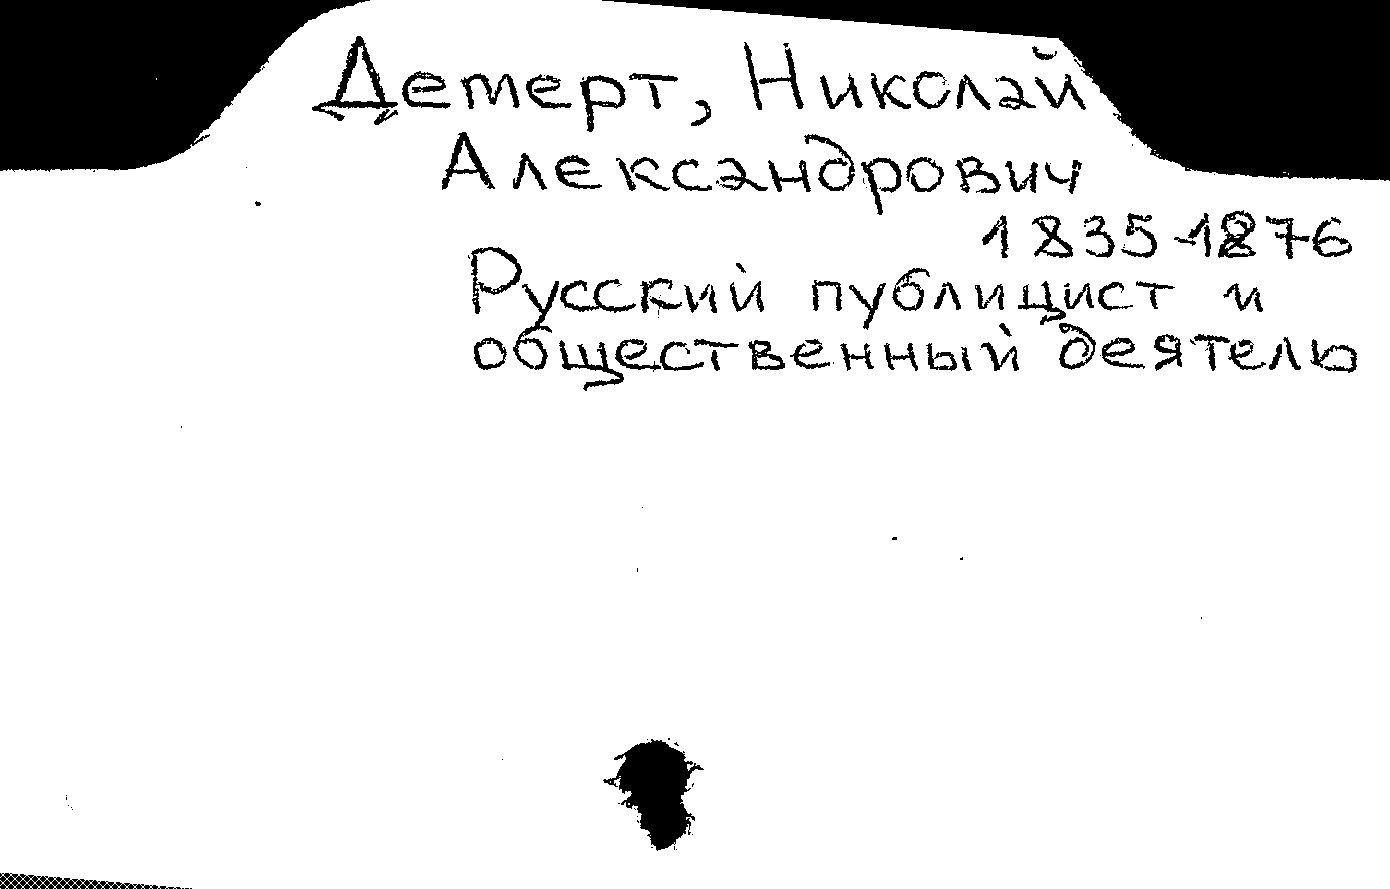 Демерт, Николай
Александрович
1835-1876
Русский публицист и
общественный деятель